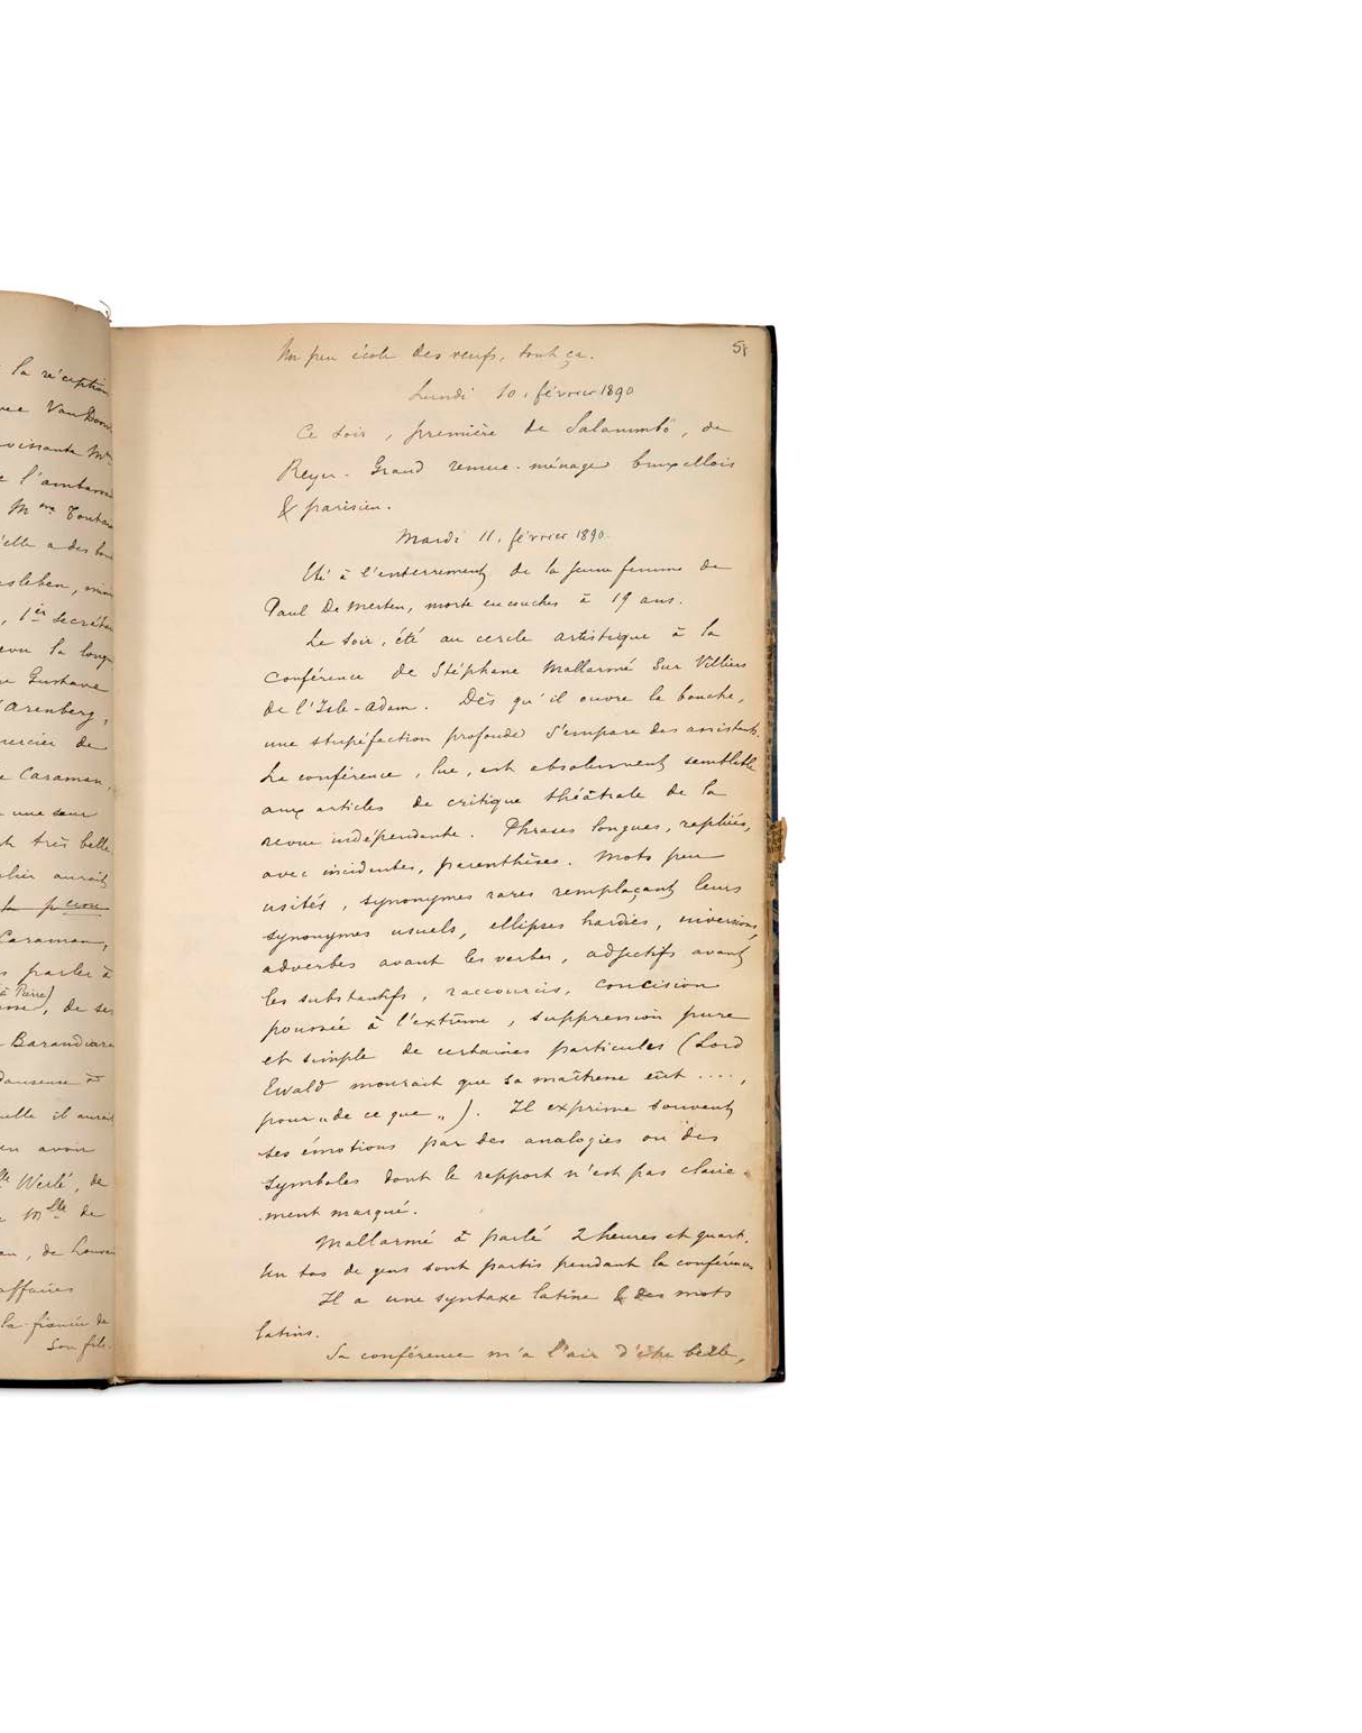 la réception
Van Dam
vissante Mme
l'ambassa
Mme
'elle a des
sleben,
, 1er Secréta
la longu
Gustave
'Arenberg,
mercier de
Caraman,
une sœur
très belle
aurait
Caraman,
parler à
(à Pierre)
, de ses
Barandiara
danseuse
uelle il aurait
en avoir
Werlé, de
Mlle de
, de Louvain
affaires
la fiancée de
son fils.
Un peu école des veufs, tout ça.
58
Lundi 10. février 1890
Ce soir, première de Salammbô, de
Reyer. Grand remue-ménage bruxellois
& parisien.
Mardi 11. février 1890.
Été à l'enterrement de la jeune femme de
Paul De Merten, morte en couches à 19 ans.
Le soir, été au cercle artistique à la
conférence de Stéphane Mallarmé sur Villiers
de l'Isle-Adam. Dès qu'il ouvre la bouche,
une stupéfaction profonde s'empare des assistants.
La conférence, lue, est absolument semblable
aux articles de critique théâtrale de la
revue indépendante. Phrases longues, repliées,
avec incidentes, parenthèses. Mots peu
usités, synonymes rares remplaçant leurs
synonymes usuels, ellipses hardies, inversions,
adverbes avant les verbes, adjectifs avant
les substantifs, raccourcis, concision
poussée à l'extrême, suppression pure
et simple de certaines particules (Lord
Ewald mourait que sa maîtresse eût ....,
pour „de ce que „). Il exprime souvent
ses émotions par des analogies ou des
symboles dont le rapport n'est pas claire-
ment marqué.
Mallarmé à parlé 2 heures et quart.
Un tas de gens sont partis pendant la conférence
Il a une syntaxe latine & des mots
latins.
Sa conférence m'a l'air d'être belle,